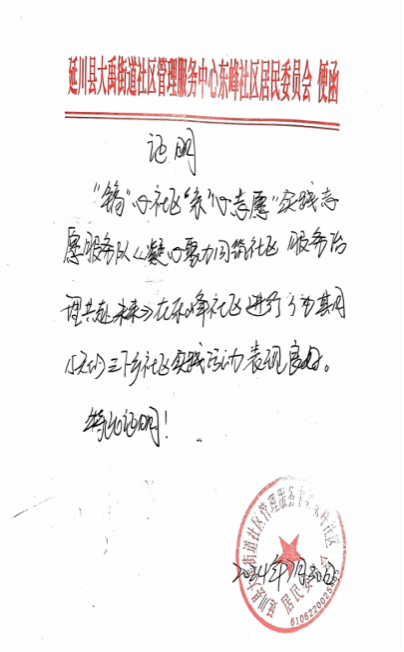 延川县大禹街道社区管理服务中心东峰社区居民委员会 便函
证明
“镐”心社区“京”心志愿”实践志
愿服务队《凝心聚力同筑社区 服务治
理共赴未来》在东峰社区进行了为期
天的三下乡社区实践活动表现良好。
特此证明！
2024年7月30日
延川县大禹街道社区管理服务中心东峰社区
居民委员会